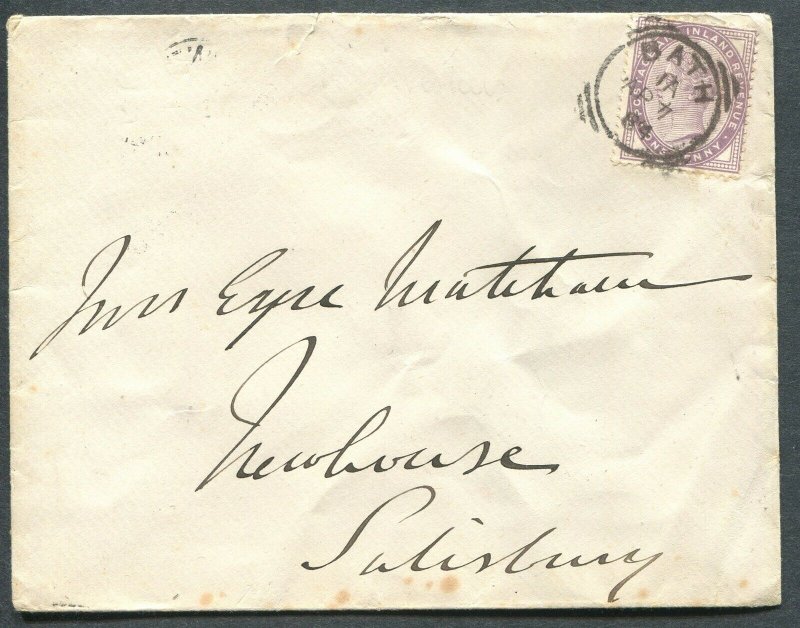 POSTAGE AND INLAND REVENUE
ONE PENNY
BATH
Miss Eyre Matcham
Newhouse
Salisbury